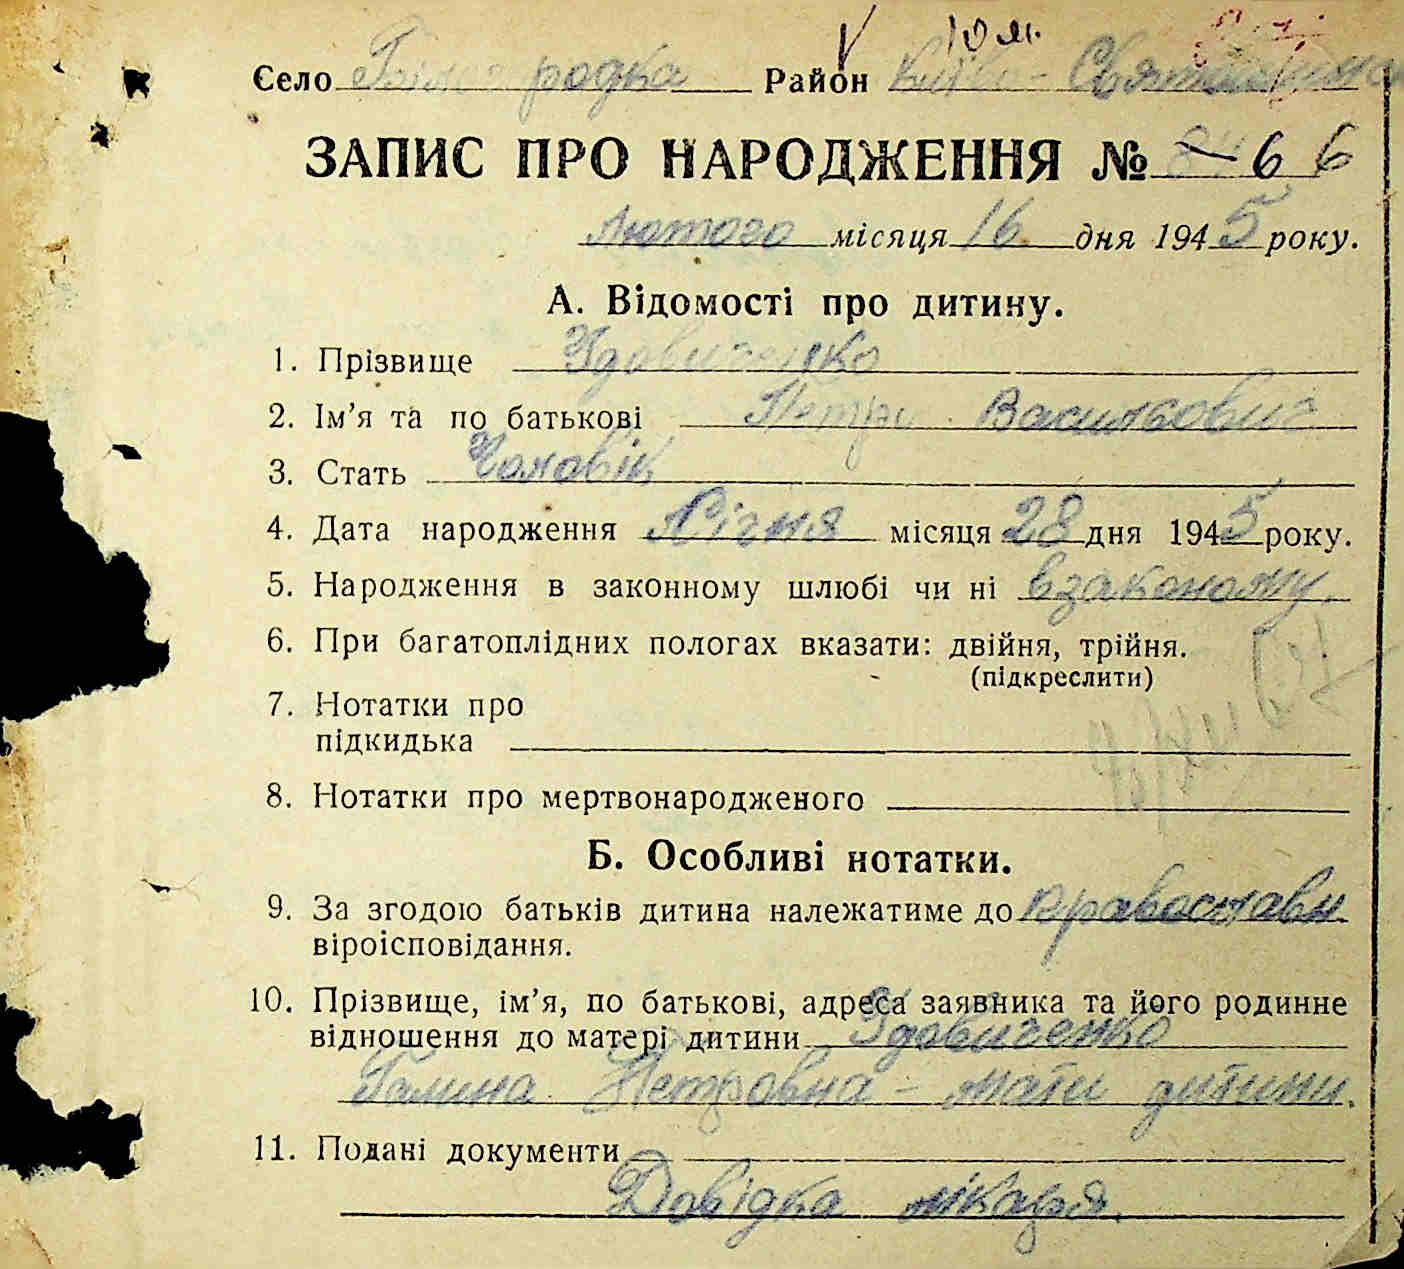 Село Білогородка Район Києво-Святошинсь
ЗАПИС ПРО НАРОДЖЕННЯ № 66
Лютого місяця 16 дня 1945 року.
А. Відомості про дитину.
1. Прізвище Удовиченко
2. Ім'я та по батькові Петро Васильович
3. Стать Чоловік
4. Дата народження Січня місяця 28 дня 1945 року.
5. Народження в законному шлюбі чи ні в законому.
6. При багатоплідних пологах вказати: двійня, трійня.
(підкреслити)
7. Нотатки про
підкидька
8. Нотатки про мертвонародженого
Б. Особливі нотатки.
9. За згодою батьків дитина належатиме до православн
віроісповідання.
10. Прізвище, ім'я, по батькові, адреса заявника та його родинне
відношення до матері дитини Удовиченко
Галина Петровна - мати дитини.
11. Подані документи
Довідка лікаря.